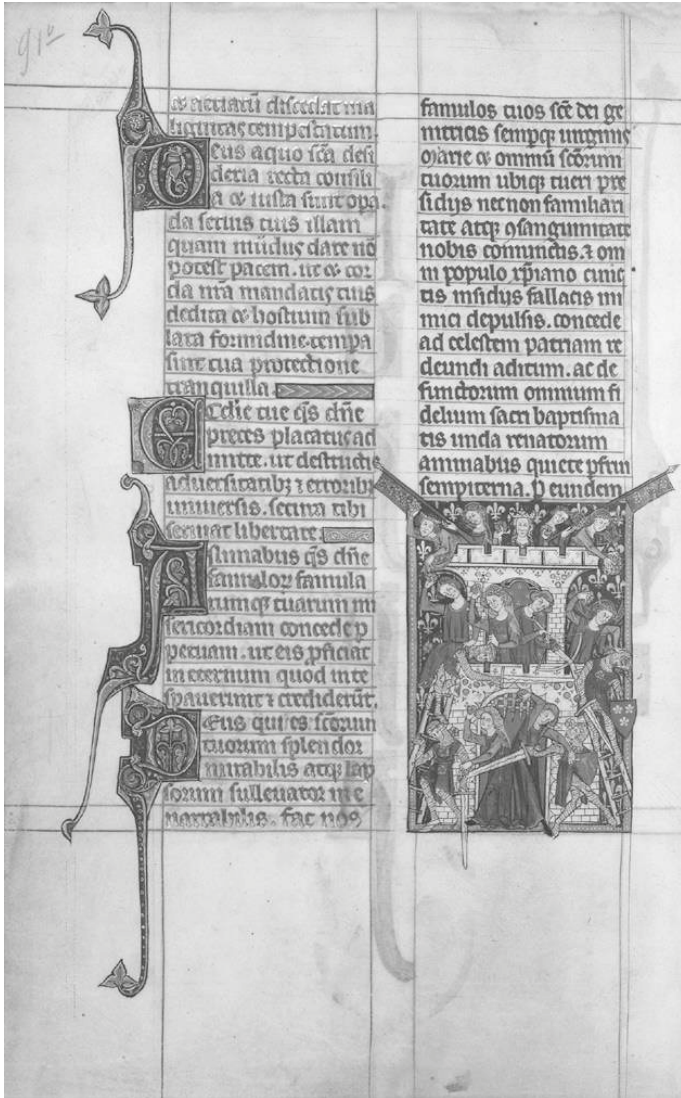 91v
et aeriarū discedat ma
lignitas tempestatum.
Deus a quo scā desi
deria recta consili
a et iusta sunt opa.
da servis tuis illam
quam mūdus dare nō
potest pacem. ut et cor
da nrā mandatis tuis
dedita et hostium sub
lata formidine. tempa
sint tua protectione
tranquilla
Ecclie tue qs dñe
preces placatus ad
mitte. ut destructis
adversitatibz et erroribz
universis. secura tibi
serviat libertate.
Animabus qs dñe
famulorū famula
rumqz tuarum mi
sericordiam concede p
petuam. ut eis pficiat
in eternum quod in te
spaverunt et crediderūt.
Deus qui es scōrum
tuorum splendor
mirabilis atqz lap
sorum sullevator in e
narrabilis. fac nos
famulos tuos scē dei ge
nitricis sempqz virginis
marie et omniū scōrum
tuorum ubiqz tueri pre
sidijs necnon familiari
tate atqz ꝯsanguinitate
nobis coniunctis. ⁊ om
ni populo xpiano cunc
tis insidijs fallacis ini
mici depulsis. concede
ad celestem patriam re
deundi aditum. ac de
functorum omnium fi
delium sacri baptisma
tis unda renatorum
animabus quiete pfrui
sempiterna. p eundem